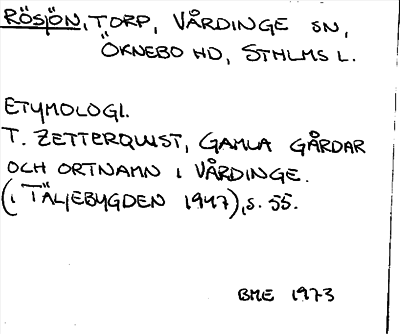 RÖSJÖN, TORP, VÅRDINGE SN,
ÖKNEBO HD, STHLMS L.
ETYMOLOGI.
T. ZETTERQVIST, GAMLA GÅRDAR
OCH ORTNAMN I VÅRDINGE.
(I TÄLJEBYGDEN 1947), S. 55.
BME 1973